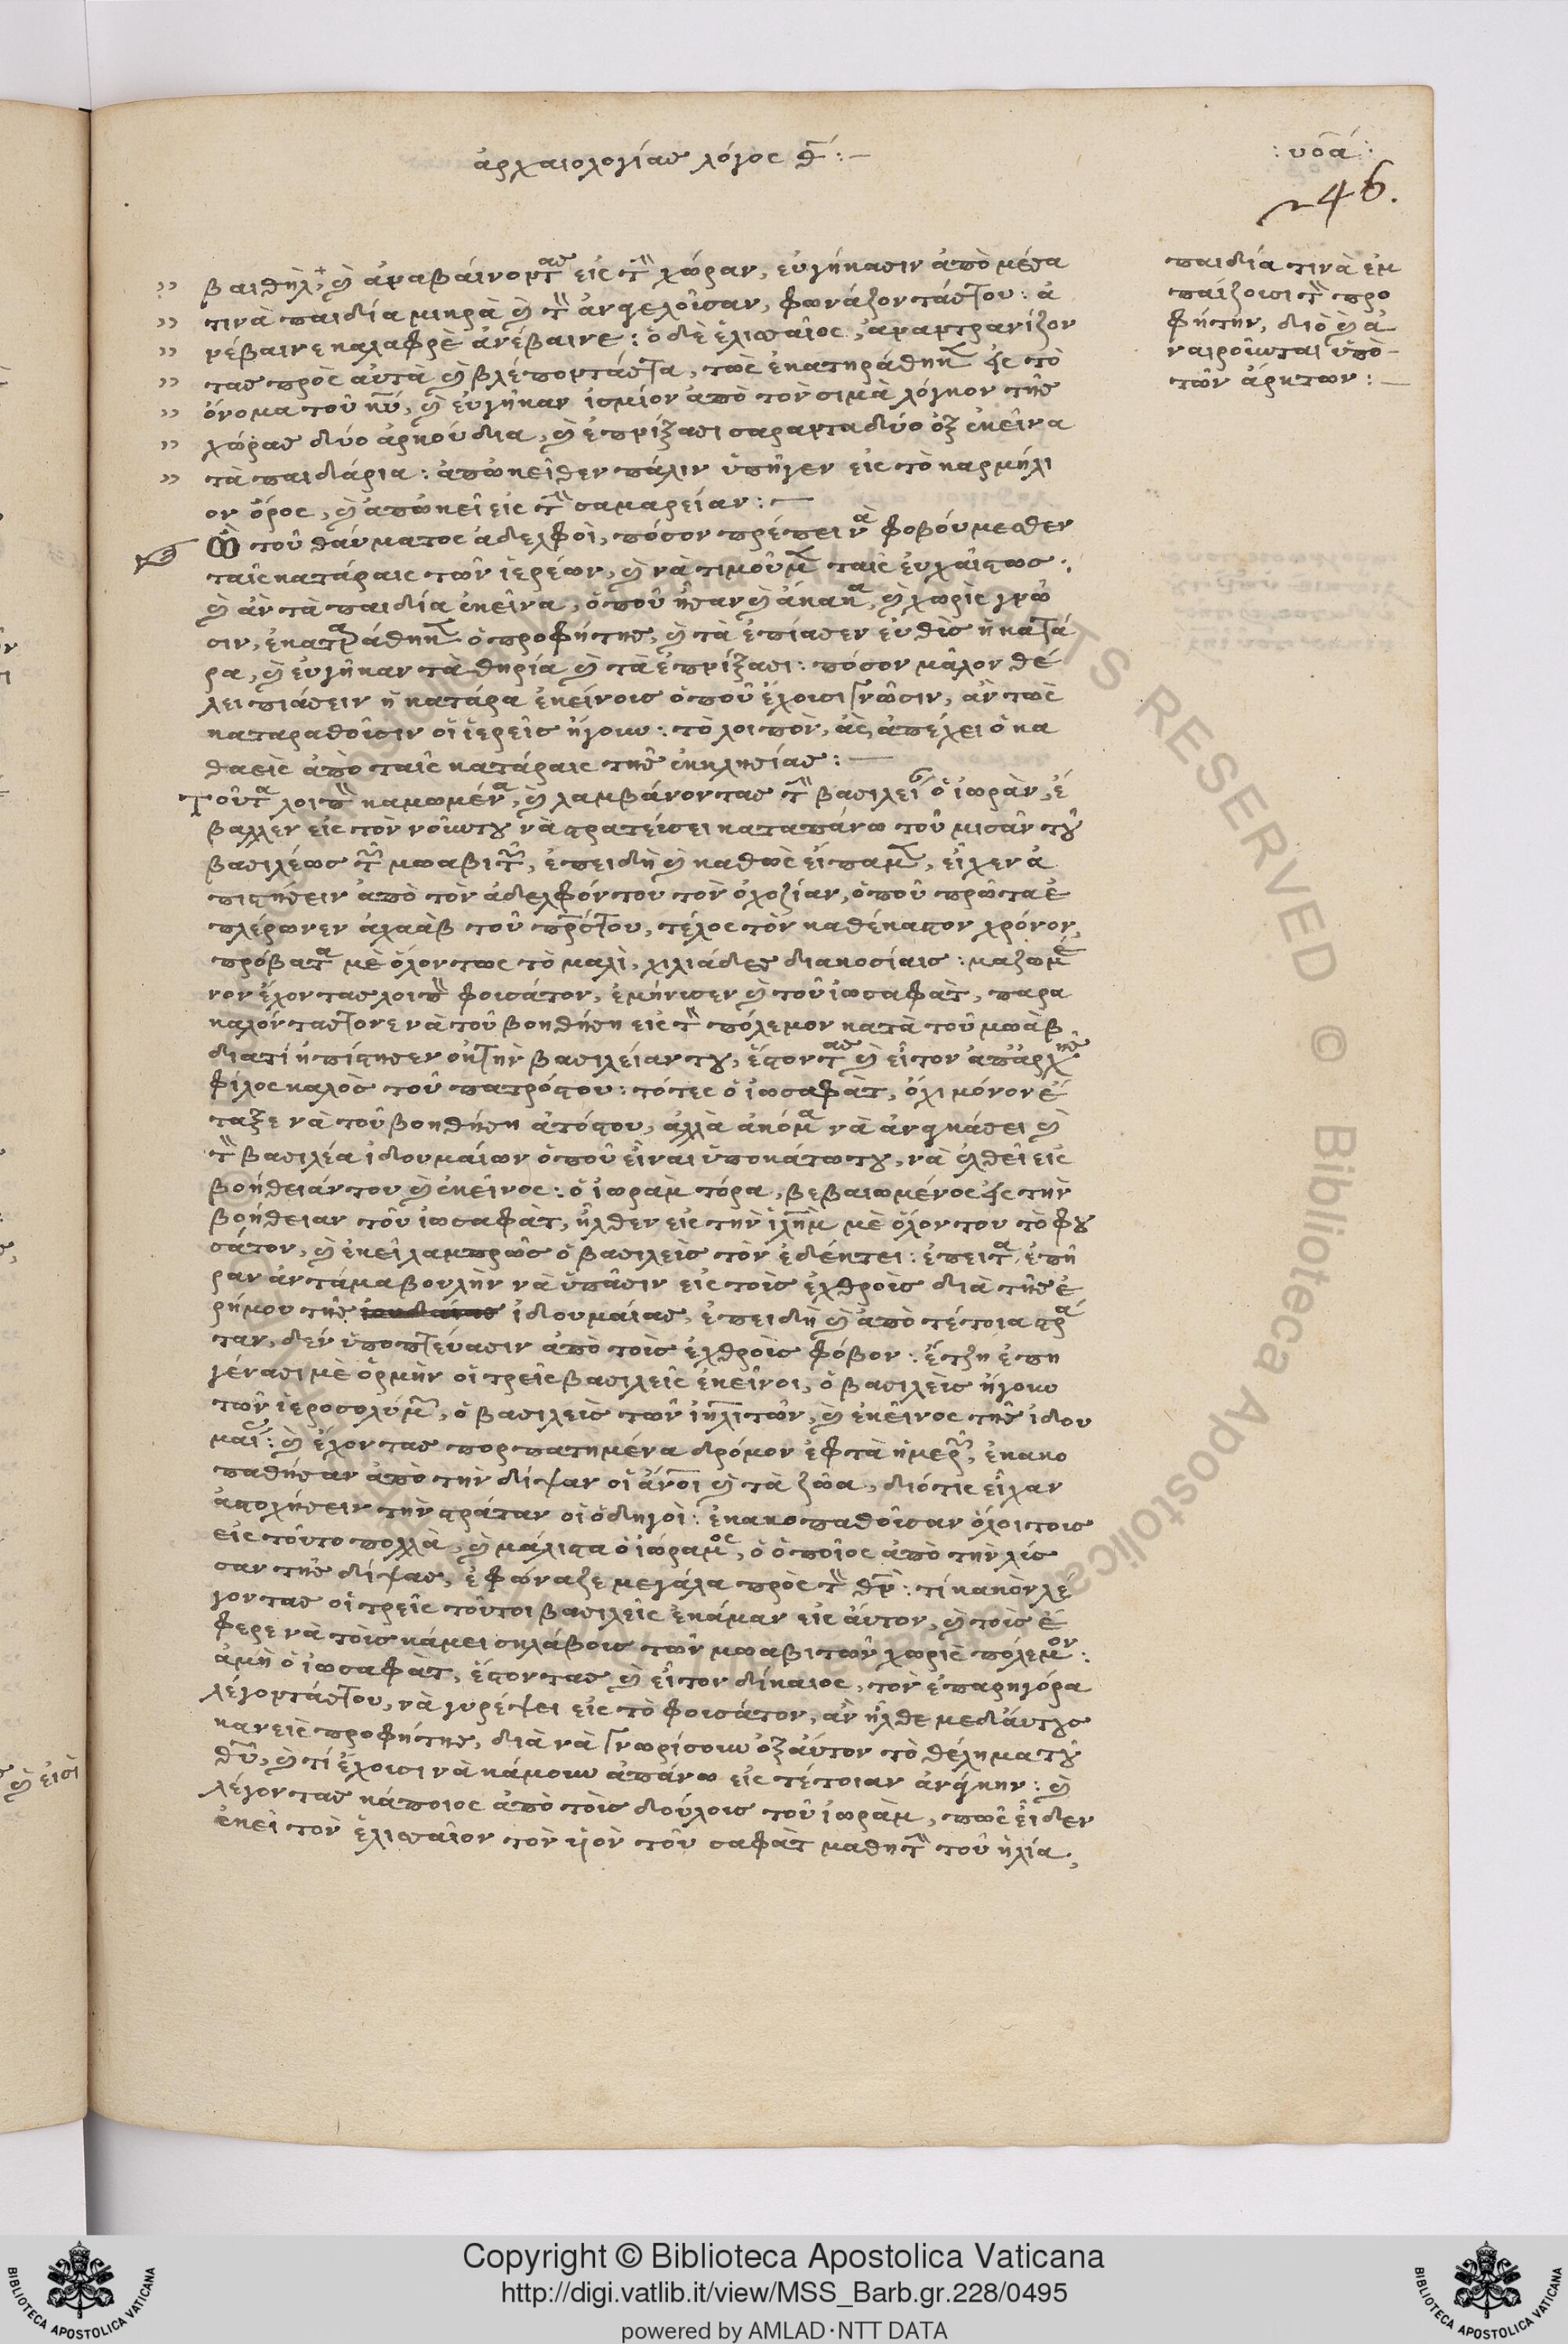 ἀρχαιολογίας λόγος θ´:—
:υοα´:
246.
βαιθὴλ, καὶ ἀναβαίνοντας εἰς τὴν χώραν, εὐγήκασιν ἀπὸ μέσα
τινὰ παιδία μικρὰ καὶ τὸν ἀνγελοῦσαν, φωνάζοντάς του: ἀ
νέβαινε καλαφρὲ ἀνέβαινε: ὁ δὲ ἐλισσαῖος, ἀναντρανίζον
τας πρὸς αὐτὰ καὶ βλέποντάς τα, τὼς ἐκατηράθηκεν εἰς τὸ
ὄνομα τοῦ κυ, καὶ εὐγῆκαν ἰσμίον ἀπὸ τὸν σιμὰ λόγκον τῆς
χώρας δύο ἀρκούδια, καὶ ἐπρίξασι σαραντα δύο ὀξ ἐκεῖνα
τὰ παιδάρια: ἀπὠκεῖθεν πάλιν ὑπῆγεν εἰς τὸ καρμήλι
ον ὄρος, καὶ ἀπὠκεῖ εἰς τὴν σαμαρείαν:—
Ὦ τοῦ θαύματος ἀδελφοὶ, πόσον πρέπει νὰ φοβούμεσθεν
ταῖς κατάραις τῶν ἱερέων, καὶ νὰ τιμοῦμεν ταῖς εὐχαῖς τως:
καὶ ἂν τὰ παιδία ἐκεῖνα, ὁποῦ ἦσαν καὶ ἄκακα, καὶ χωρὶς γνῶ
σιν, ἐκαταράθηκεν ὁ προφήτης, καὶ τὰ ἐπίασεν εὐθὶς ἡ κατά
ρα, καὶ εὐγῆκαν τὰ θηρία καὶ τὰ ἐπρίξασι: πόσον μᾶλον θέ
λει πιάσειν ἡ κατάρα ἐκείνοις ὁποῦ ἔχουσι γνῶσιν, ἂν τὼς
καταραθοῦσιν οἱ ἱερεῖς ἤγουν: τὸ λοιπὸν, ἂς ἀπέχει ὁ κα
θαεὶς ἀπὸ ταῖς κατάραις τῆς ἐκκλησίας:—
Τοῦτα λοιπὸν καμωμένα, καὶ λαμβάνοντας τὴν βασιλείαν ὁ ἰωρὰν, ἔ
βαλλεν εἰς τὸν νοῦν του νὰ στρατεύσει καταπάνω τοῦ μισᾶν τοῦ
βασιλέως τῶν μωαβιτῶν, ἐπειδὴ καὶ καθὼς εἴπαμεν, εἶχεν ἀ
πιστήσειν ἀπὸ τὸν ἀδελφόν του τὸν ὀχοζίαν, ὁποῦ πρῶτα ἐ
πλέρωνεν ἀχαὰβ τοῦ πρς του, τέλος τὸν καθέκαστον χρόνον,
πρόβατα μὲ ὅλον τως τὸ μαλὶ, χιλιάδες διακοσίαις: μαζωμέ
νον ἔχοντας λοιπὸν φουσάτον, ἐμήνυσεν καὶ τοῦ ἰωσαφὰτ, παρα
καλόντας τονε νὰ τοῦ βοηθήση εἰς τὸν πόλεμον κατὰ τοῦ μωὰβ
φίλος καλὸς τοῦ πατρός του: τότες ὁ ἰωσαφὰτ, ὄχι μόνον ἔ
ταξε νὰ τοῦ βοηθήση ἀτός του, ἀλλὰ ἀκόμα νὰ ἀνακάσει καὶ
τὸν βασιλέα ἰδουμαίων ὁποῦ εἶναι ὑποκάτω του, νὰ ἐλθεῖ εἰς
βοήθειάν του καὶ ἐκεῖνος: ὁ ἰωρὰμ τόρα, βεβαιωμένος εἰς τὴν
βοήθειαν τοῦ ἰωσαφὰτ, ἦλθεν εἰς τὴν ἰλημ μὲ ὅλον του τὸ φου
σάτον, καὶ ἐκεῖ λαμπρῶς ὁ βασιλεὺς τὸν ἐδέκτει: ἔπειτα ἐπῆ
ραν ἀντάμα βουλὴν νὰ ὑπᾶσιν εἰς τοὺς ἐχθροὺς διὰ τῆς ἐ
ρήμου τῆς ἰδουμαίας, ἐπειδὴ καὶ ἀπὸ τέτοια στρά
ταν, δὲν ὑποπτεύασιν ἀπὸ τοὺς ἐχθροὺς φόβον: ἔτζη ἐπη
γένασι μὲ ὁρμὴν οἱ τρεῖς βασιλεῖς ἐκεῖνοι, ὁ βασιλεὺς ἤγουν
τῶν ἱεροσολύμων, ὁ βασιλεὺς τῶν ἰηλιτῶν, καὶ ἐκεῖνος τῆς ἰδου
μαίας: καὶ ἔχοντας πορπατημένα δρόμον ἐφτὰ ἡμερῶν, ἐκακο
παθήσαν ἀπὸ τὴν δίψαν οἱ ἄνοι καὶ τὰ ζῶα, διότις εἶχαν
ἀστοχήσειν τὴν στράταν οἱ ὁδηγοὶ: ἐκακοπαθοῦσαν ὅλοι τους
εἰς τοῦτο πολλὰ, καὶ μάλιστα ὁ ἰώραμος, ὁ ὁποῖος ἀπὸ τὴν λύσ
σαν τῆς δίψας, ἐφώναζε μεγάλα πρὸς τὸν θν: τί κακὸν λέ
γοντας οἱ τρεῖς τοῦτοι βασιλεῖς ἐκάμαν εἰς αὐτον, καὶ τοὺς ἔ
φερε νὰ τοὺς κάμει σκλάβους τῶν μωαβιτῶν χωρὶς πόλεμον:
ἀμὴ ὁ ἰωσαφὰτ, ἔστοντας καὶ εἶτον δίκαιος, τὸν ἐπαρηγόρα
λέγοντάς του, νὰ γυρέψει εἰς τὸ φουσάτον, ἂν ἦλθε μεδ αὐτους
κανεὶς προφήτης, διὰ νὰ γνωρίσουν ὀξ αὐτον τὸ θέλημα τοῦ
θυ, καὶ τί ἔχουσι νὰ κάμουν ἀπάνω εἰς τέτοιαν ἀνάγκην: καὶ
λέγοντας κάποιος ἀπὸ τοὺς δούλους τοῦ ἰωρὰμ, πῶς εἶδεν
ἐκεῖ τὸν ἐλισσαῖον τὸν υἱὸν τοῦ σαφὰτ μαθητὴν τοῦ ἠλία,
παιδία τινὰ ἐμ
παίζουσι τὸν προ
φήτην, διὸ καὶ ἀ
ναιροῦνται ὑπὸ
τῶν ἄρκτων:—
Copyright © Biblioteca Apostolica Vaticana
http://digi.vatlib.it/view/MSS_Barb.gr.228/0495
powered by AMLAD·NTT DATA
BIBLIOTECA APOSTOLICA VATICANA
BIBLIOTECA APOSTOLICA VATICANA